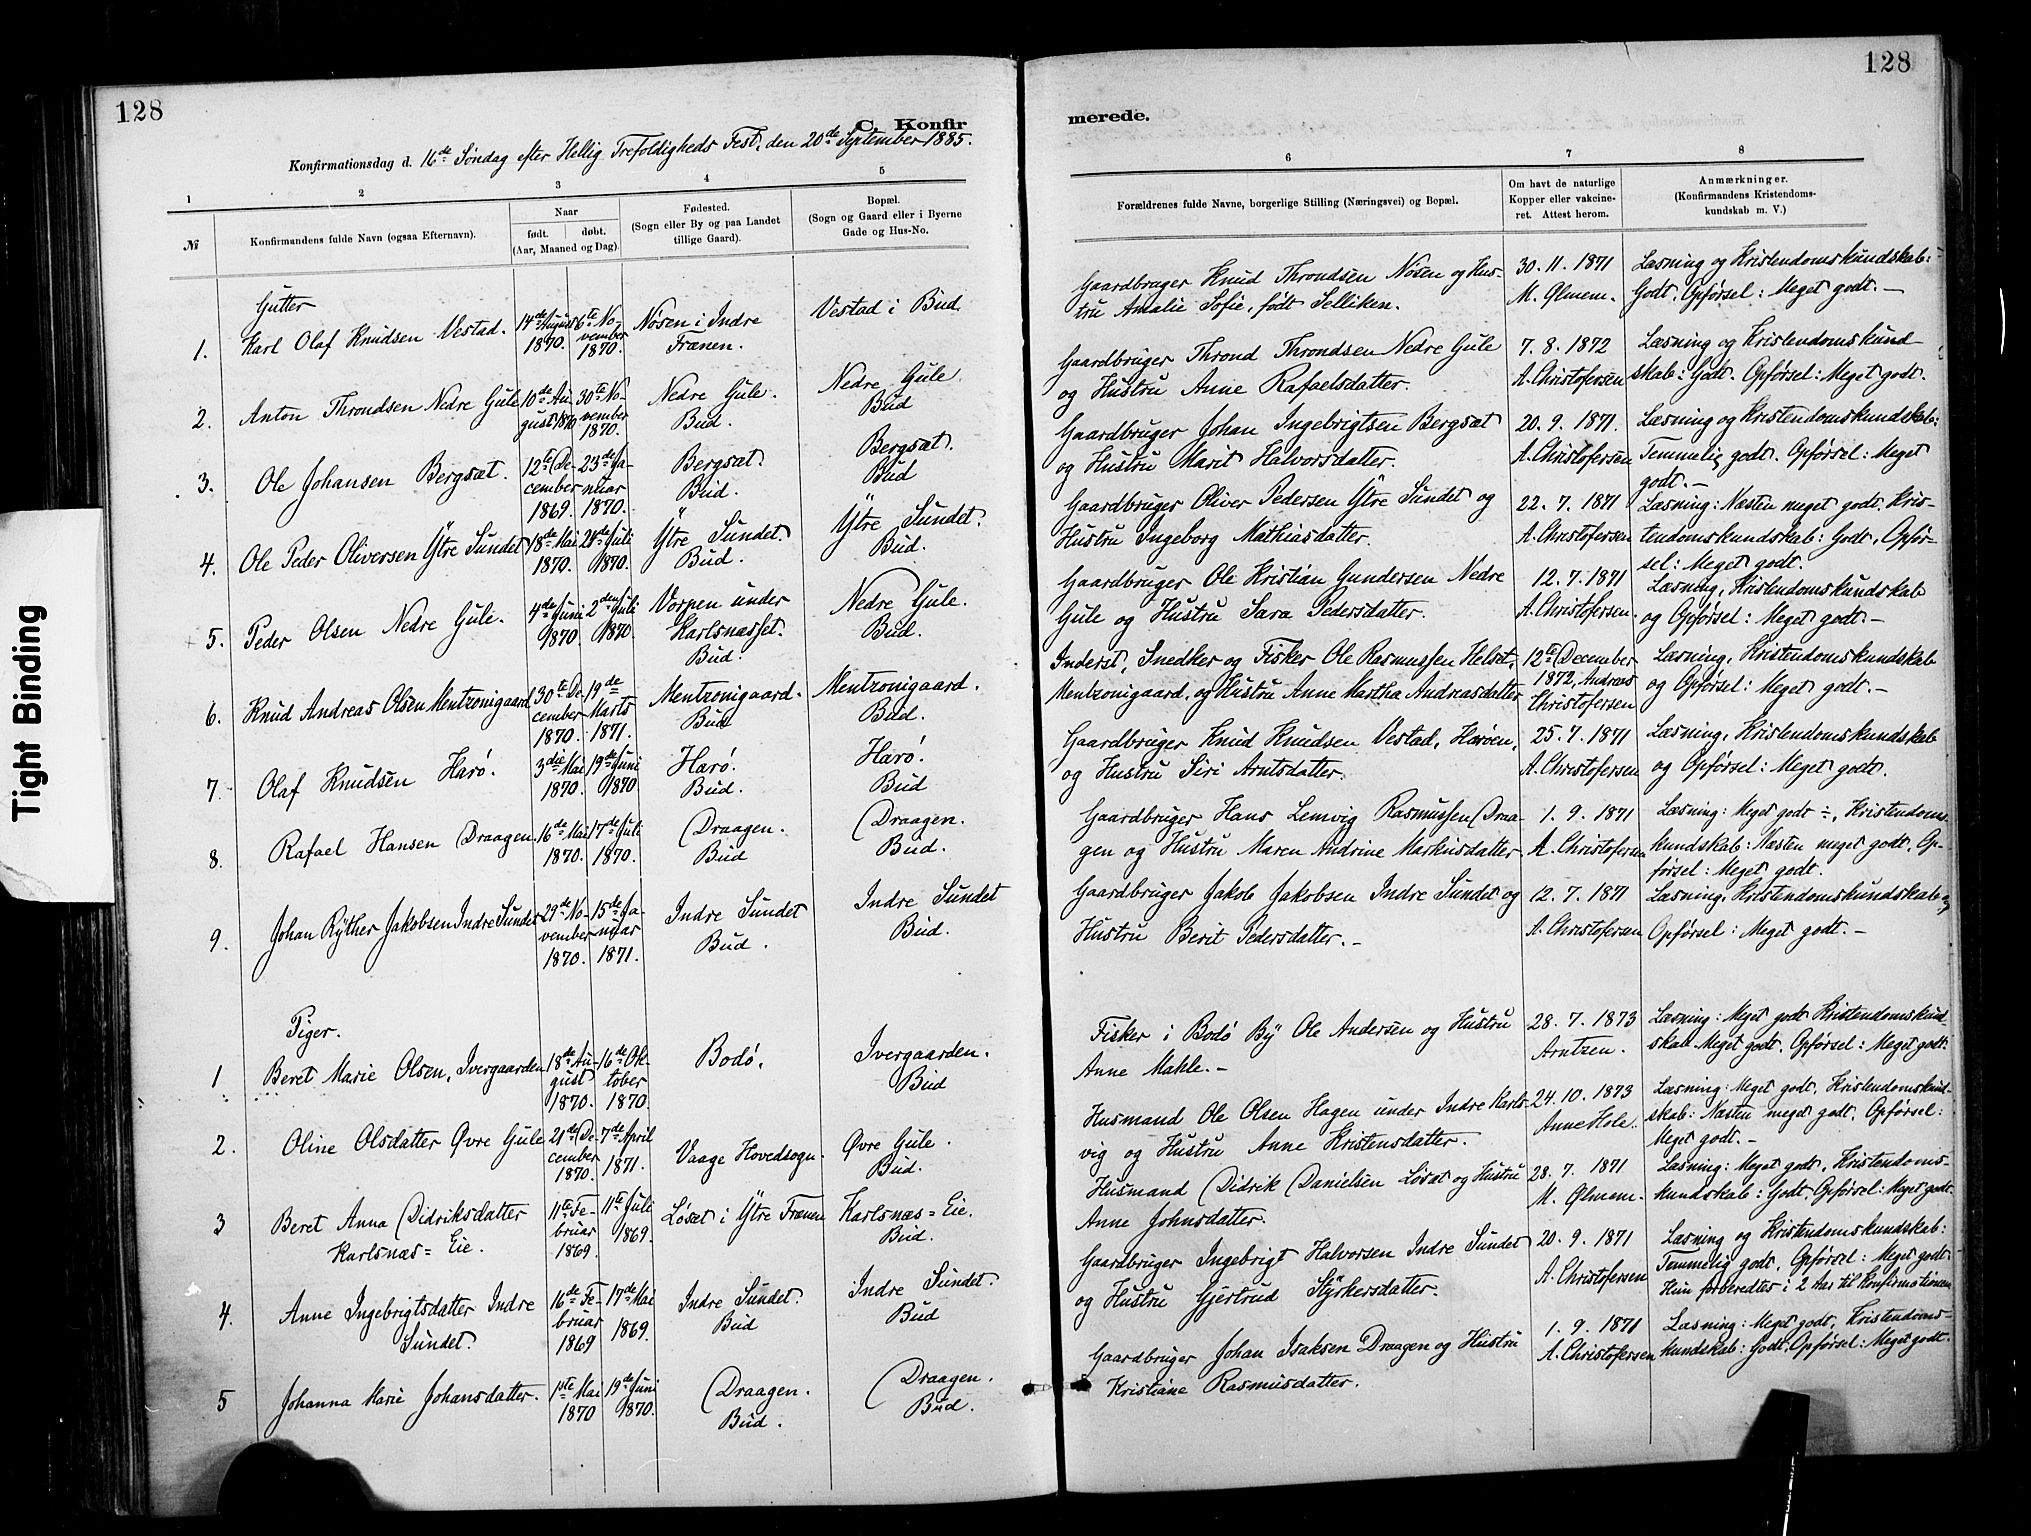 128
128
C. Konfir
merede.
Konfirmationsdag d. 16de Søndag efter Hellig Trefoldigheds Fest, den 20de September 1885.
1
2
3
4
5
6
7
8
№
Konfirmandens fulde Navn (ogsaa Efternavn).
Naar
født. døbt.
(Aar, Maaned og Dag)
Fødested.
(Sogn eller By og paa Landet
tillige Gaard).
Bopæl.
(Sogn og Gaard eller i Byerne
Gade og Hus-No.
Forældrenes fulde Navne, borgerlige Stilling (Næringsvei) og Bopæl.
Om havt de naturlige
Kopper eller vakcine-
ret. Attest herom.
Anmærkninger.
(Konfirmandens Kristendoms-
kundskab m. V.)
Gutter
1.
Karl Olaf Knudsen Vestad.
14de August
1870.
6te No-
vember
1870.
Nøsen i Indre
Frænen.
Vestad i Bud.
Gaardbruger Knud Throndsen Nøsen og Hus-
tru Amalie Sofie, født Selliken.
30. 11. 1871
M. Qlmem.
Læsning og Kristendomskundskab:
Godt, Opførsel: Meget godt. —
2.
Anton Throndsen Nedre Gule
10de Au-
gust 1870
30te No-
vember
1870.
Nedre Gule.
Bud.
Nedre Gule.
Bud
Gaardbruger Thrond Throndsen Nedre Gule
og Hustru Anne Rafaelsdatter.
7. 8. 1872
A. Christofersen
Læsning og Kristendomskund-
skab: Godt. Opførsel: Meget godt.
3.
Ole Johansen Bergsæt.
12te De-
cember
1869.
23de Ja-
nuar
1870.
Bergsæt.
Bud.
Bergsæt.
Bud
Gaardbruger Johan Ingebrigtsen Bergsæt
og Hustru Marit Halvorsdatter.
20. 9. 1871.
A. Christofersen
Læsning og Kristendomskundskab:
Temmelig godt. Opførsel: Meget
godt. —
4.
Ole Peder Oliversen Ytre Sundet
18de Mai
1870.
24de Juli
1870.
Ytre Sundet.
Bud.
Ytre Sundet.
Bud.
Gaardbruger Oliver Pedersen Ytre Sundet og
Hustru Ingeborg Mathiasdatter.
22. 7. 1871
A. Christofersen
Læsning: Næsten meget godt. Kris-
tendomskundskab: Godt, Opfør-
sel: Meget godt.
5.
Peder Olsen Nedre Gule.
4de Juni
1870.
2den Juli
1870.
Vorpen under
Karlsnæsset.
Bud.
Nedre Gule.
Bud.
Gaardbruger Ole Kristian Gundersen Nedre
Gule og Hustru Sara Pedersdatter.
12. 7. 1871
A. Christofersen.
Læsning, Kristendomskundskab
og Opførsel: Meget godt. —
6.
Knud Andreas Olsen Mentzonigaard
30te De-
cember
1870.
19de
Marts
1871.
Mentzonigaard.
Bud
Mentzonigaard.
Bud.
Inderst, Snedker og Fisker Ole Rasmussen Helset,
Mentzonigaard, og Hustru Anne Martha Andreasdatter
12te December
1872, Andreas
Christofersen
Læsning, Kristendomskundskab
og Opførsel: Meget godt. —
7.
Olaf Knudsen Harø.
3die Mai
1870.
19de Juni
1870
Harø.
Bud.
Harø.
Bud
Gaardbruger Knud Knudsen Vestad, Harøen,
og Hustru Siri Arntsdatter.
25. 7. 1871
A. Christofersen
Læsning, Kristendomskundskab
og Opførsel: Meget godt.
8.
Rafael Hansen Draagen.
16de Mai
1870.
17de Juli
1870.
Draagen.
Bud
Draagen.
Bud.
Gaardbruger Hans Lemvig Rasmussen Draa-
gen og Hustru Maren Andrine Markusdatter
1. 9. 1871
A. Christofersen
Læsning: Meget godt ÷, Kristendoms-
kundskab: Næsten meget godt. Op-
førsel: Meget godt.
9.
Johan Ryther Jakobsen Indre Sundet
29de No-
vember
1870.
15de Ja-
nuar
1871.
Indre Sundet
Bud.
Indre Sundet
Bud.
Gaardbruger Jakob Jakobsen Indre Sundet og
Hustru Berit Pedersdatter. —
12. 7. 1871
A. Christofersen
Læsning, Kristendomskundskab og
Opførsel: Meget godt. —
Piger.
1
Beret Marie Olsen, Ivergaarden
18de Au-
gust
1870.
16de Ok-
tober
1870.
Bodø.
Ivergaarden.
Bud
Fisker i Bodø By Ole Andersen og Hustru
Anne Makle. —
28. 7. 1873
Arntzen.
Læsning: Meget godt Kristendomskund-
skab Meget godt. Opførsel: Meget godt.
2.
Oline Olsdatter Øvre Gule
21de De-
cember
1870.
7de April
1871.
Vaage Hovedsogn.
Øvre Gule.
Bud.
Husmand Ole Olsen Hagen under Indre Karls-
vig og Hustru Anne Kristensdatter.
24. 10. 1873
Anne Hole.
Læsning: Meget godt. Kristendomskund-
skab: Næsten meget godt. Opførsel:
Meget godt. —
3
Beret Anna Didriksdatter
Karlsnæs= Eie.
11te Fe-
bruar
1869.
11te Juli
1869.
Løsæt i Ytre Frænen
Karlsnæs= Eie.
Bud.
Husmand Didrik Danielsen Løsæt og Hustru
Anne Johnsdatter.
28. 7. 1871
M. Qlmem.
Læsning: Meget godt, Kristendoms-
kundskab: Godt Opførsel: Meget godt.
4.
Anne Ingebrigtsdatter Indre
Sundet.
16de Fe-
bruar
1869
17de Mai
1869.
Indre Sundet.
Bud
Indre Sundet.
Bud
Gaardbruger Ingebrigt Halvorsen Indre Sundet
og Hustru Gjertrud Styrkersdatter.
20. 9. 1871
A. Christofersen
Læsning og Kristendomskundskab:
Temmelig godt, Opførsel: Meget godt.
Hun forberedtes i 2 Aar til Konfirmationen
5
Johanna Marie Johansdatter.
1ste Mai
1870
19de Juni
1870.
Draagen.
Bud.
Draagen.
Bud.
Gaardbruger Johan Isaksen Draagen og Hustru
Kristiane Rasmusdatter.
1. 9. 1871
A. Christofersen
Læsning: Meget godt, Kristendoms-
kundskab: Godt, Opførsel: Meget godt.
Tight Binding